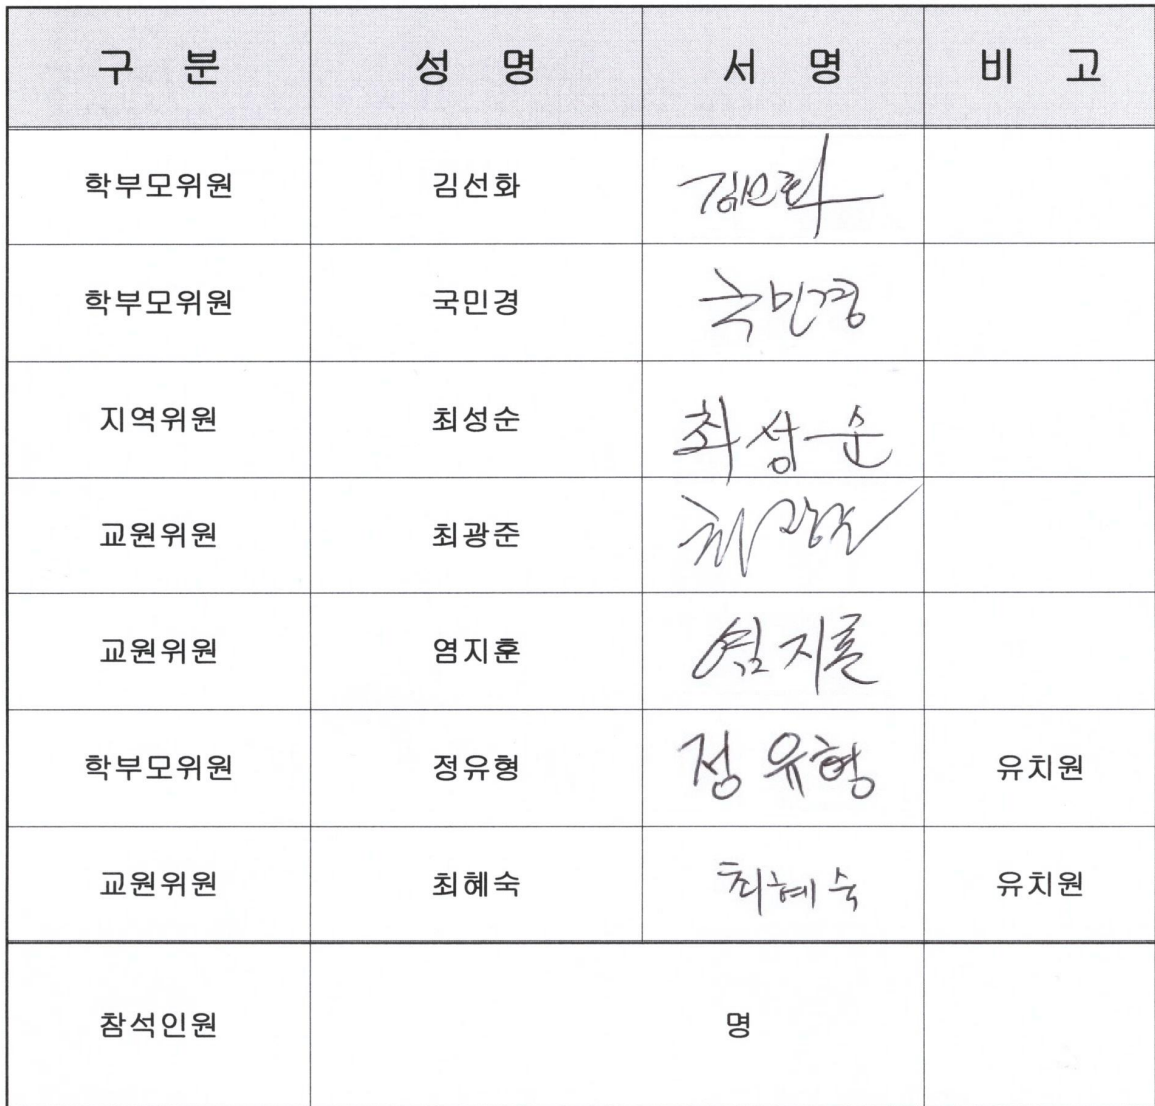 구 분 성 명 서 명 비 고
학부모위원 김선화 김선화
학부모위원 국민경 국민경
지역위원 최성순 최성순
교원위원 최광준 최광준
교원위원 염지훈 염지훈
학부모위원 정유형 정유형 유치원
교원위원 최혜숙 최혜숙 유치원
참석인원 명